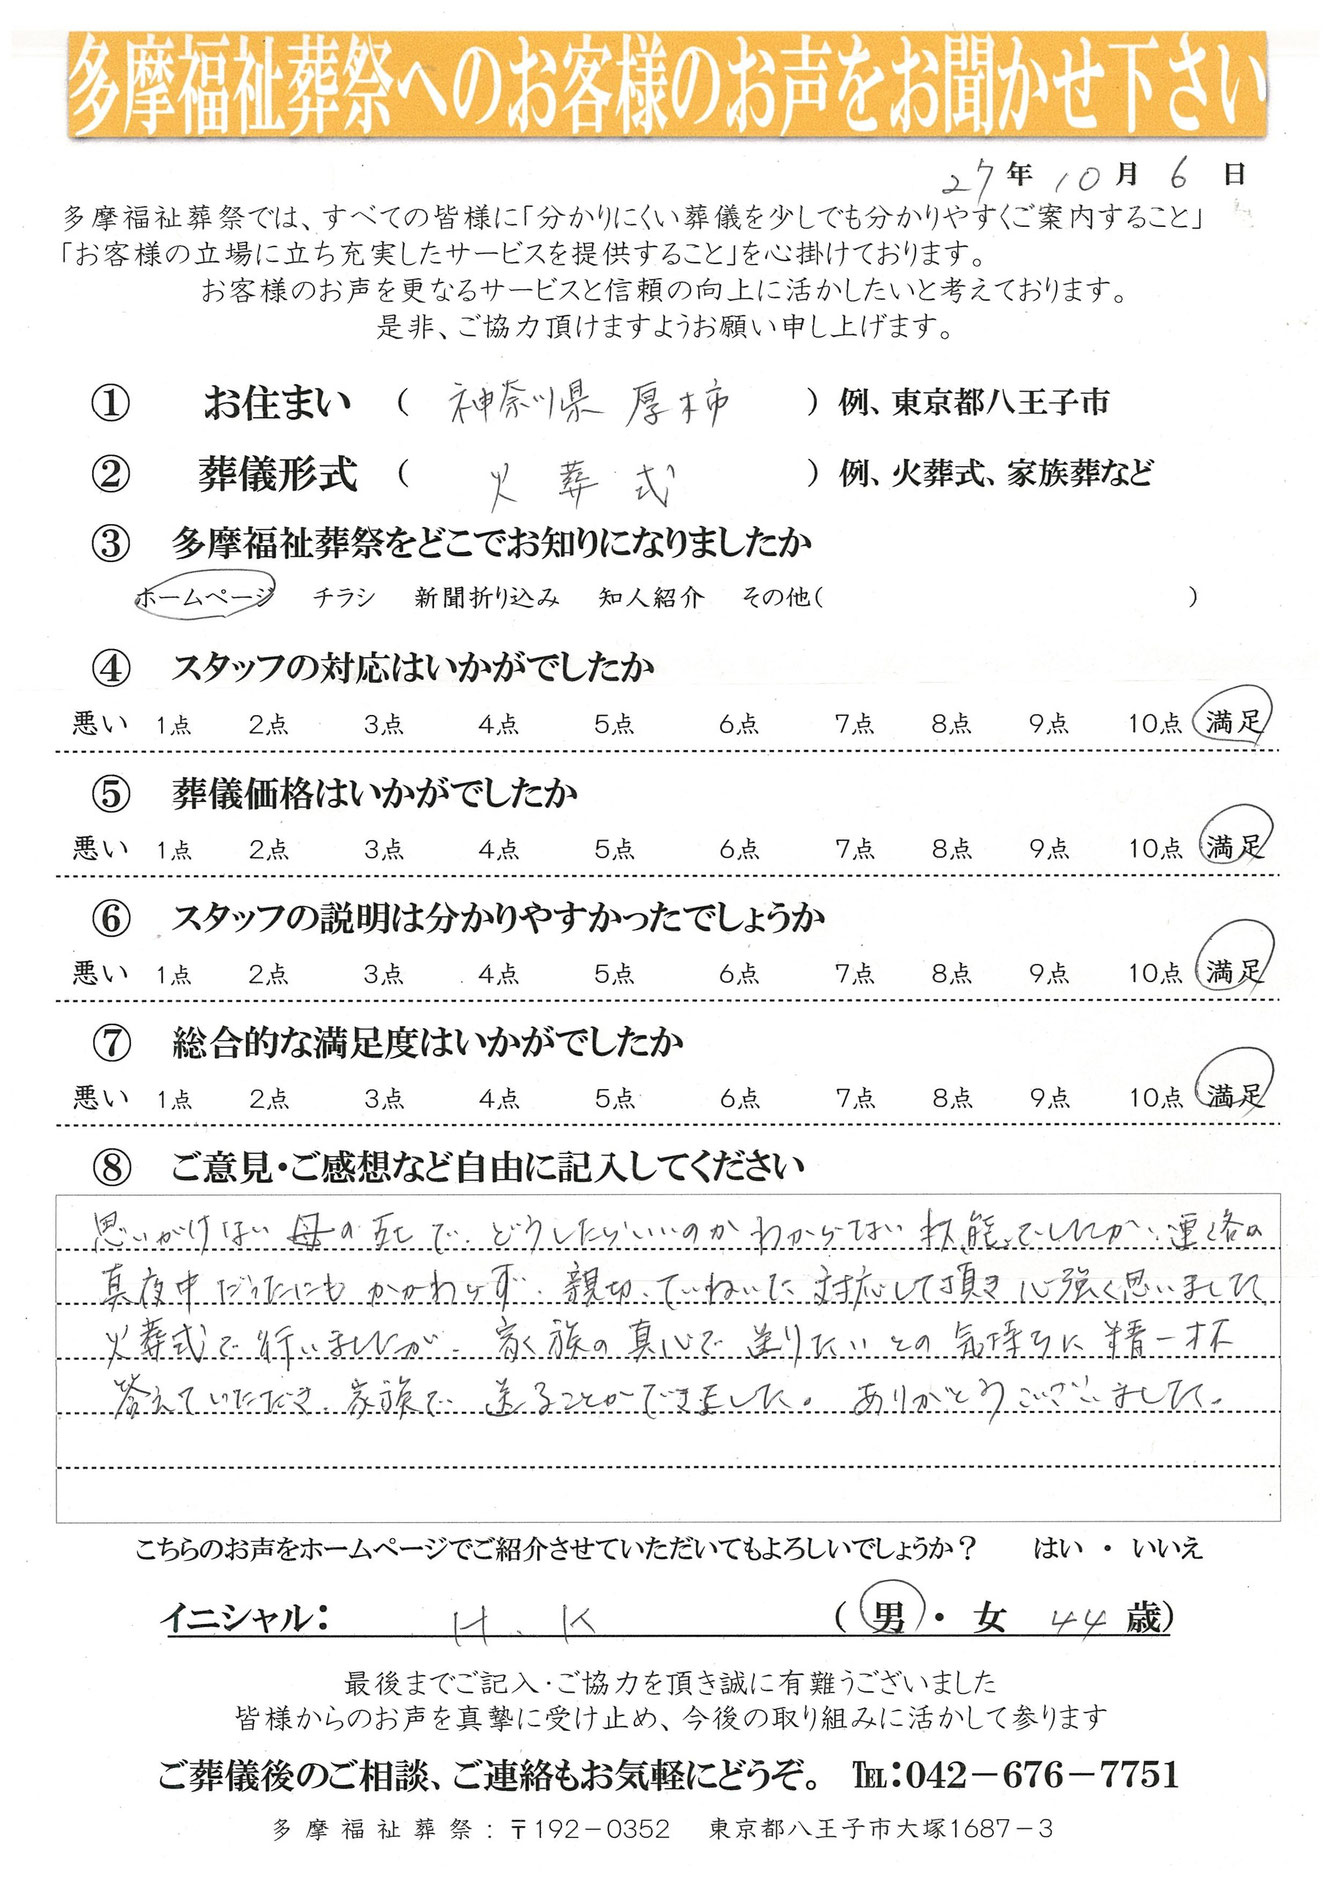 多摩福祉葬祭へのお客様のお声をお聞かせ下さい
27年10月6日
多摩福祉葬祭では、すべての皆様に「分かりにくい葬儀を少しでも分かりやすくご案内すること」
「お客様の立場に立ち充実したサービスを提供すること」を心掛けております。
お客様のお声を更なるサービスと信頼の向上に活かしたいと考えております。
是非、ご協力頂けますようお願い申し上げます。
① お住まい ( 神奈川県 厚木市 ) 例、東京都八王子市
② 葬儀形式 ( 火葬式 ) 例、火葬式、家族葬など
③ 多摩福祉葬祭をどこでお知りになりましたか
ホームページ チラシ 新聞折り込み 知人紹介 その他( )
④ スタッフの対応はいかがでしたか
悪い 1点 2点 3点 4点 5点 6点 7点 8点 9点 10点 満足
⑤ 葬儀価格はいかがでしたか
悪い 1点 2点 3点 4点 5点 6点 7点 8点 9点 10点 満足
⑥ スタッフの説明は分かりやすかったでしょうか
悪い 1点 2点 3点 4点 5点 6点 7点 8点 9点 10点 満足
⑦ 総合的な満足度はいかがでしたか
悪い 1点 2点 3点 4点 5点 6点 7点 8点 9点 10点 満足
⑧ ご意見・ご感想など自由に記入してください
思いがけない母の死で、どうしたらいいのかわからない状態でしたが、連絡の
真夜中だったにもかかわらず、親切、ていねいな対応して頂き心強く思いました。
火葬式で行いましたが、家族の真心で送りたいとの気持ちに精一杯
答えていただき、家族で送ることができました。ありがとうございました。
こちらのお声をホームページでご紹介させていただいてもよろしいでしょうか？ はい ・ いいえ
イニシャル： H.K (男・女 44歳)
最後までご記入・ご協力を頂き誠に有難うございました
皆様からのお声を真摯に受け止め、今後の取り組みに活かして参ります
ご葬儀後のご相談、ご連絡もお気軽にどうぞ。 TEL：042－676－7751
多摩福祉葬祭：〒192－0352 東京都八王子市大塚1687－3